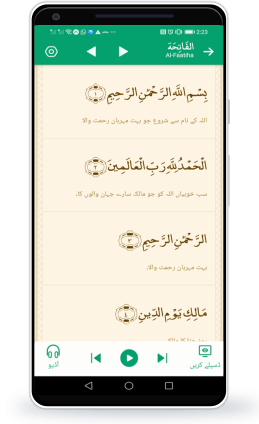 2:23
الفَاتِحَة
Al-Faatiha
بِسْمِ اللَّهِ الرَّحْمَٰنِ الرَّحِيمِ ﴿١﴾
اللہ کے نام سے شروع جو بہت مہربان رحمت والا
الْحَمْدُ لِلَّهِ رَبِّ الْعَالَمِينَ ﴿٢﴾
سب خوبیاں اللہ کو جو مالک سارے جہان والوں کا۔
الرَّحْمَٰنِ الرَّحِيمِ ﴿٣﴾
بہت مہربان رحمت والا،
مَالِكِ يَوْمِ الدِّينِ ﴿٤﴾
آڈیو
ڈسپلے کریں